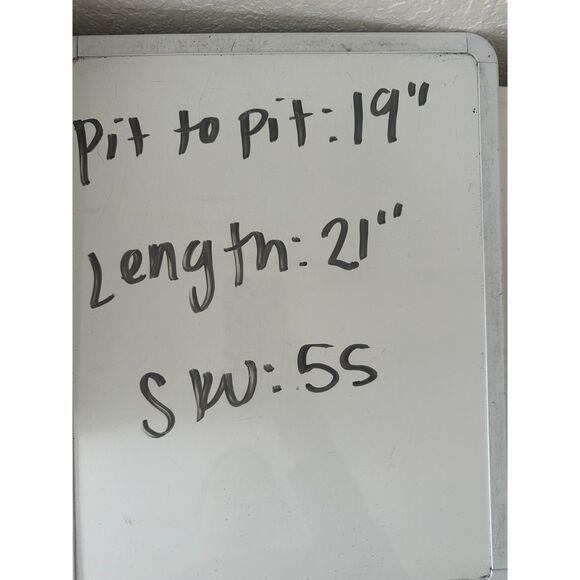 Pit to pit: 19"
Length: 21"
SKU: 55